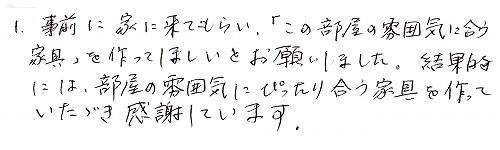 1. 事前に家に来てもらい、「この部屋の雰囲気に合う
家具」を作ってほしいとお願いしました。結果的
には、部屋の雰囲気にぴったり合う家具を作って
いただき感謝しています.